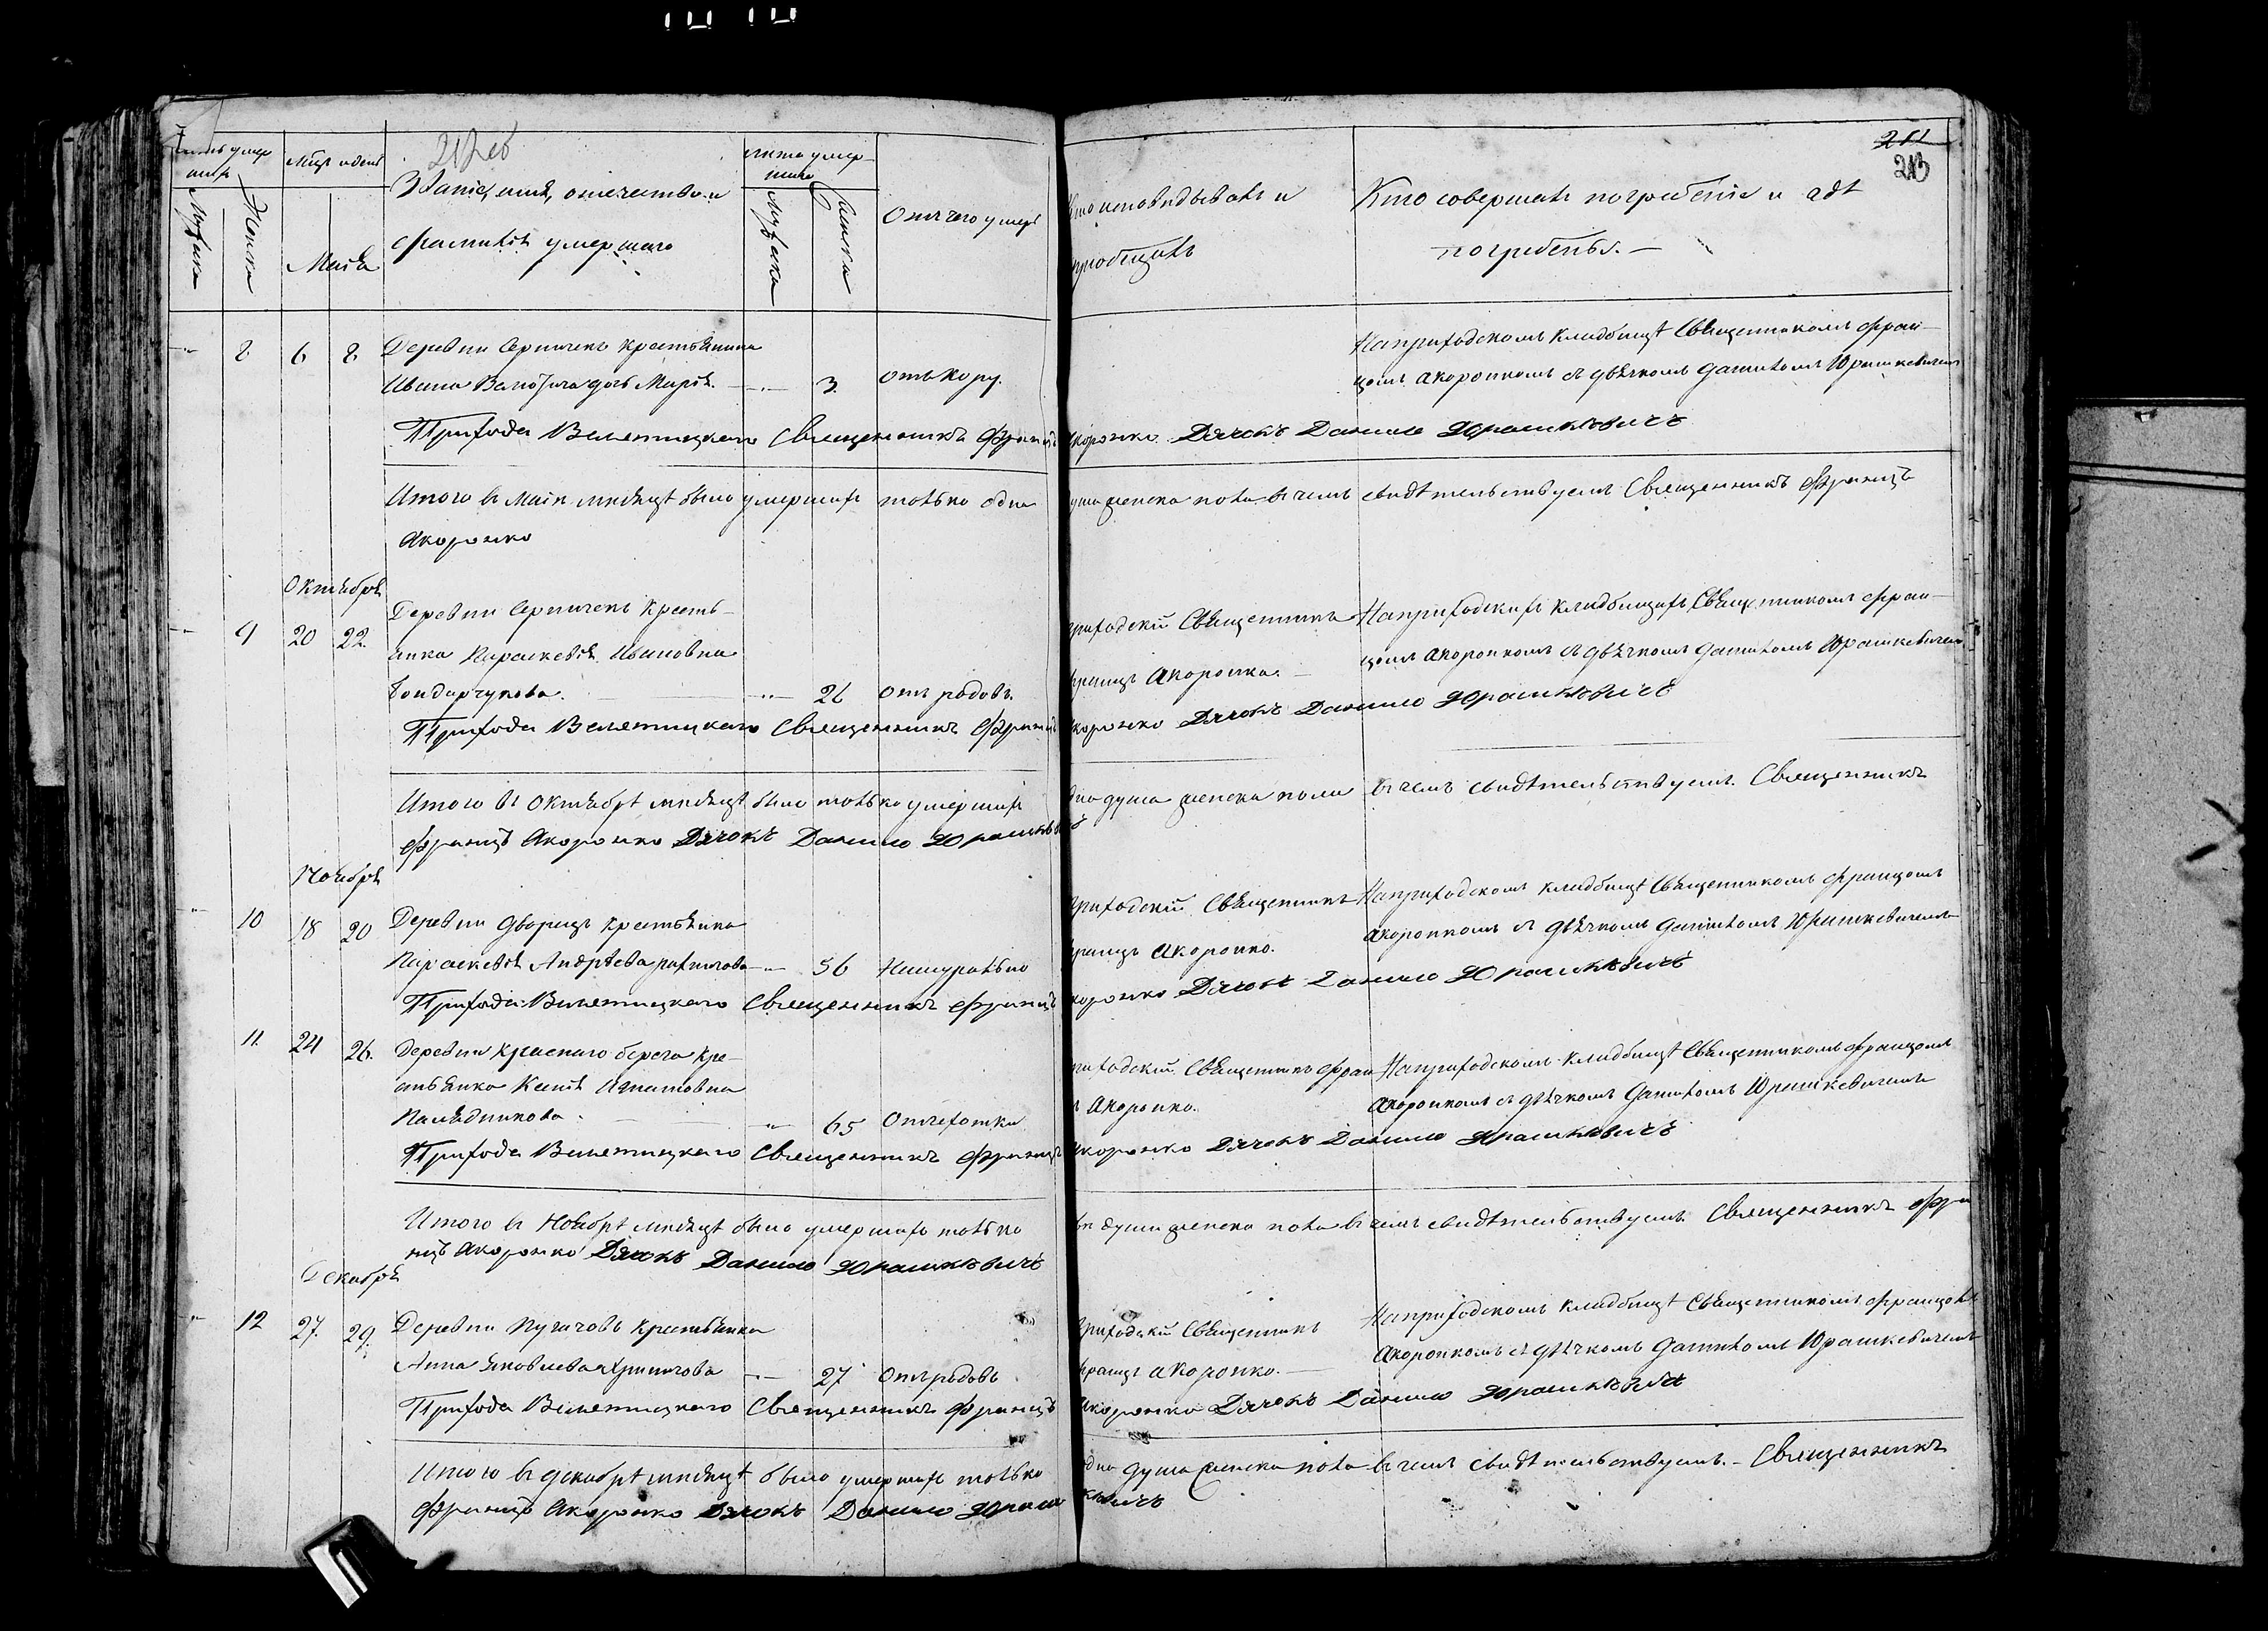 212об
211
213
Счетъ умершихъ
Мужска
Женска
Мѣсяцъ и день
Маія
Званіе, имя, отечество и
фамилія умершаго
Лѣта умершаго
Мужска
Женска
Отъ чего умеръ
Кто исповѣдывалъ и
приобщалъ
Кто совершалъ погребеніе и гдѣ
погребены. —
8 6 8 Деревни Серничекъ крестьянина
Ивана дочь Марія. — 3 отъ кору.
На приходскомъ кладбищѣ Священникомъ Фран-
цомъ Акоронкомъ съ дьячкомъ Данииломъ Юрашкевичемъ
Прихода Велетицкаго Священникъ Францъ Акоронко Дячокъ Данило Юрашкевичъ
Итого въ Маіи мѣсяцѣ было умершихъ только одна душа женска пола въ чемъ свидѣтельствуемъ Священникъ Францъ
Акоронко
Октября
9 20 22. Деревни Серничекъ Кресть-
янка Параскевія Ивановна
Бондарчукова. — 26 отъ родовъ.
Приходскій Священникъ
Францъ Акоронко. —
На приходскихъ кладбищахъ Священникомъ Фран-
цомъ Акоронкомъ съ дьячкомъ Данииломъ Юрашкевичемъ
Прихода Велетицкаго Священникъ Францъ Акоронко Дячокъ Данило Юрашкевичъ
Итого въ Октябрѣ мѣсяцѣ было только умершихъ одна душа женска пола въ чемъ свидѣтельствуемъ. Священникъ
Францъ Акоронко Дячокъ Данило Юрашкевичъ
Ноября
10 18 20 Деревни Дворецъ Крестьянка
Параскевія Андрѣева — 56 Натурально
Приходскій Священникъ
Францъ Акоронко.
На приходскомъ кладбищѣ Священникомъ Францомъ
Акоронкомъ съ дьячкомъ Данииломъ Юрашкевичемъ
Прихода Велетицкаго Священникъ Францъ Акоронко Дячокъ Данило Юрашкевичъ
11. 24 26. Деревни Краснаго берега Кре-
стьянка Ксенія Игнатовна
— 65 Отъ чахотки
Приходскій Священникъ Фран
ъ Акоронко.
На приходскомъ кладбищѣ Священникомъ Францомъ
Акоронкомъ съ дьячкомъ Данииломъ Юрашкевичемъ
Прихода Велетицкаго Священникъ Францъ Акоронко Дячокъ Данило Юрашкевичъ
Итого въ Ноябрѣ мѣсяцѣ было умершихъ только двѣ души женска пола въ чемъ свидѣтельствуемъ Священникъ Фра
нцъ Акоронко Дячокъ Данило Юрашкевичъ
Декабря
12 27. 29. Деревни Пугачовъ Крестьянка
Анна Яковлева — 27 Отъ родовъ
Приходскій Священникъ
Францъ Акоронко. —
На приходскомъ кладбищѣ Священникомъ Францомъ
Акоронкомъ съ дьячкомъ Данииломъ Юрашкевичемъ
Прихода Велетицкаго Священникъ Францъ Акоронко Дячокъ Данило Юрашкевичъ
Итого въ декабрѣ мѣсяцѣ было умершихъ только одна душа женска пола въ чемъ свидѣтельствуемъ. — Священникъ
Францъ Акоронко Дячокъ Данило Юрашкевичъ